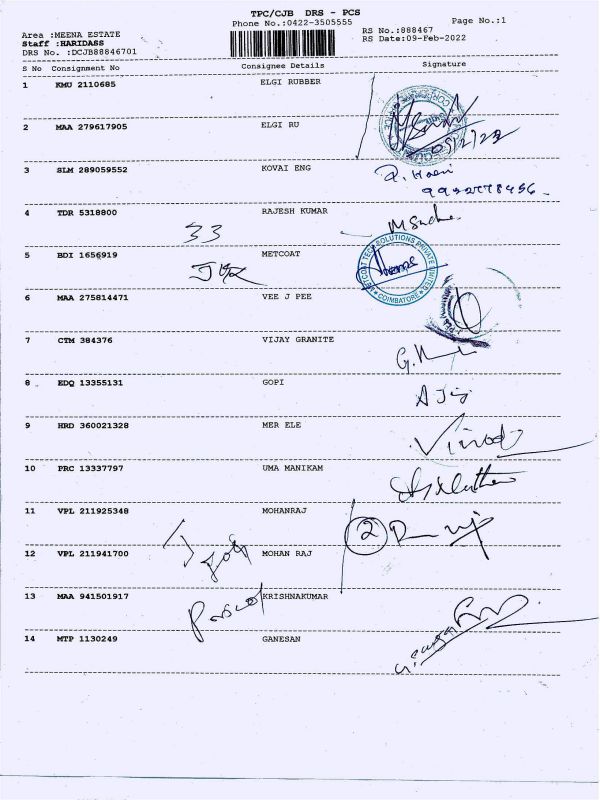 TPC/CJB DRS - PCS
Phone No.:0422-3505555 Page No.:1
Area :MEENA ESTATE RS No.:888467
Staff :HARIDASS RS Date:09-Feb-2022
DRS No. :DCJB88846701
S No Consignment No Consignee Details Signature
1 KMU 2110685 ELGI RUBBER
2 MAA 279617905 ELGI RU
3 SLM 289059552 KOVAI ENG
4 TDR 5318800 RAJESH KUMAR
33
5 BDI 1656919 METCOAT
METCOAT TECH SOLUTIONS PRIVATE LIMITED
COIMBATORE
6 MAA 275814471 VEE J PEE
7 CTM 384376 VIJAY GRANITE
8 EDQ 13355131 GOPI
9 HRD 360021328 MER ELE
Vinod
10 PRC 13337797 UMA MANIKAM
11 VPL 211925348 MOHANRAJ
2
12 VPL 211941700 MOHAN RAJ
13 MAA 941501917 KRISHNAKUMAR
14 MTP 1130249 GANESAN